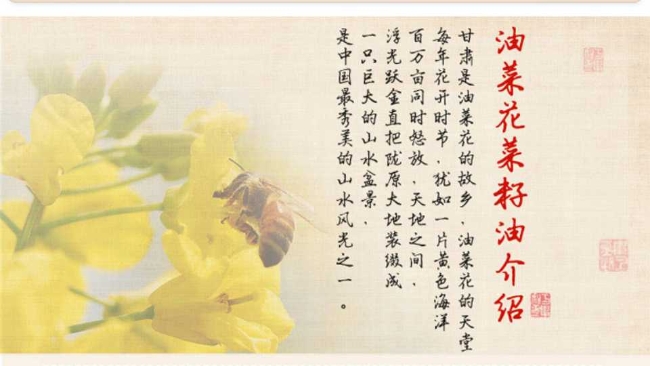 油菜花菜籽油介绍
甘肃是油菜花的故乡,油菜花的天堂
每年花开时节,犹如一片黄色海洋
百万亩同时怒放,天地之间,
浮光跃金直把陇原大地装缀成
一只巨大的山水盆景,
是中国最秀美的山水风光之一。